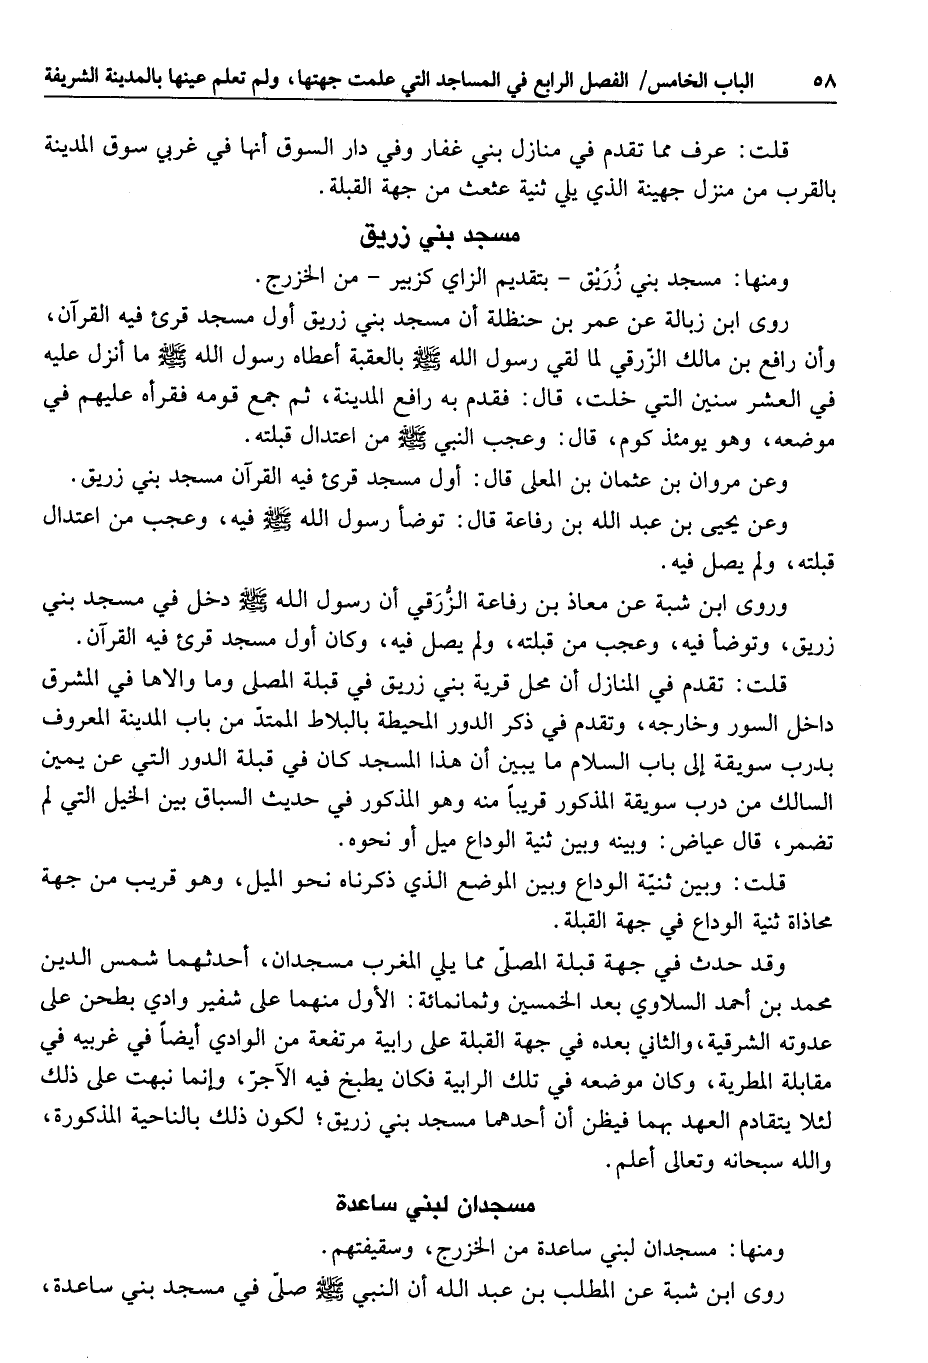 ٥٨ الباب الخامس/ الفصل الرابع في المساجد التي علمت جهتها، ولم تعلم عينها بالمدينة الشريفة
قلت: عرف مما تقدم في منازل بني غفار وفي دار السوق أنها في غربي سوق المدينة
بالقرب من منزل جهينة الذي يلي ثنية عثعث من جهة القبلة.
مسجد بني زريق
ومنها: مسجد بني زُرَيْق - بتقديم الزاي كزبير - من الخزرج.
روى ابن زبالة عن عمر بن حنظلة أن مسجد بني زريق أول مسجد قرئ فيه القرآن،
وأن رافع بن مالك الزّرقي لما لقي رسول الله ﷺ بالعقبة أعطاه رسول الله ﷺ ما أنزل عليه
في العشر سنين التي خلت، قال: فقدم به رافع المدينة، ثم جمع قومه فقرأه عليهم في
موضعه، وهو يومئذ كوم، قال: وعجب النبي ﷺ من اعتدال قبلته.
وعن مروان بن عثمان بن المعلى قال: أول مسجد قرئ فيه القرآن مسجد بني زريق.
وعن يحيى بن عبد الله بن رفاعة قال: توضأ رسول الله ﷺ فيه، وعجب من اعتدال
قبلته، ولم يصل فيه.
وروى ابن شبة عن معاذ بن رفاعة الزُّرَقي أن رسول الله ﷺ دخل في مسجد بني
زريق، وتوضأ فيه، وعجب من قبلته، ولم يصل فيه، وكان أول مسجد قرئ فيه القرآن.
قلت: تقدم في المنازل أن محل قرية بني زريق في قبلة المصلى وما والاها في المشرق
داخل السور وخارجه، وتقدم في ذكر الدور المحيطة بالبلاط الممتدّ من باب المدينة المعروف
بدرب سويقة إلى باب السلام ما يبين أن هذا المسجد كان في قبلة الدور التي عن يمين
السالك من درب سويقة المذكور قريباً منه وهو المذكور في حديث السباق بين الخيل التي لم
تضمر، قال عياض: وبينه وبين ثنية الوداع ميل أو نحوه.
قلت: وبين ثنيّة الوداع وبين الموضع الذي ذكرناه نحو الميل، وهو قريب من جهة
محاذاة ثنية الوداع في جهة القبلة.
وقد حدث في جهة قبلة المصلّى مما يلي المغرب مسجدان، أحدثهما شمس الدين
محمد بن أحمد السلاوي بعد الخمسين وثمانمائة: الأول منهما على شفير وادي بطحن على
عدوته الشرقية،والثاني بعده في جهة القبلة على رابية مرتفعة من الوادي أيضاً في غربيه في
مقابلة المطرية، وكان موضعه في تلك الرابية فكان يطبخ فيه الآجرّ، وإنما نبهت على ذلك
لئلا يتقادم العهد بهما فيظن أن أحدهما مسجد بني زريق؛ لكون ذلك بالناحية المذكورة،
والله سبحانه وتعالى أعلم.
مسجدان لبني ساعدة
ومنها: مسجدان لبني ساعدة من الخزرج، وسقيفتهم.
روى ابن شبة عن المطلب بن عبد الله أن النبي ﷺ صلّى في مسجد بني ساعدة،